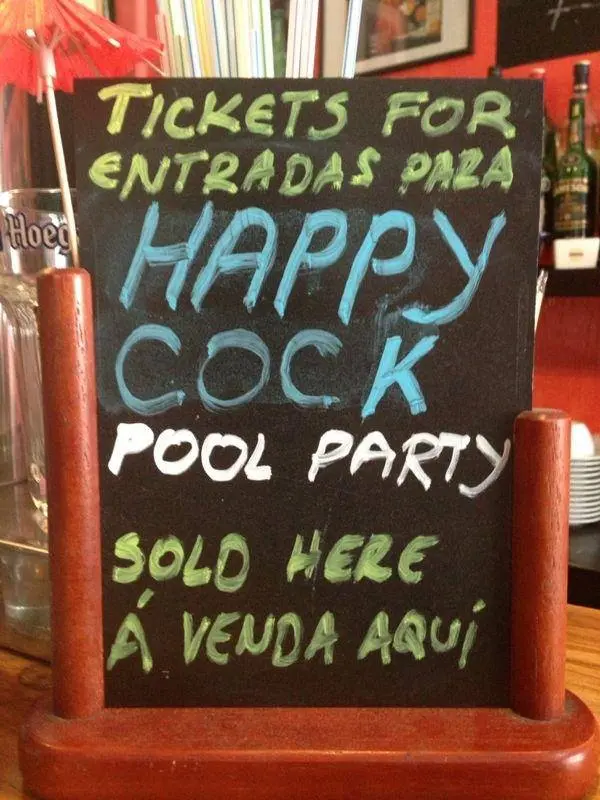 TICKETS FOR
ENTRADAS PARA
HAPPY
COCK
POOL PARTY
SOLD HERE
Á VENDA AQUÍ
Hoeg